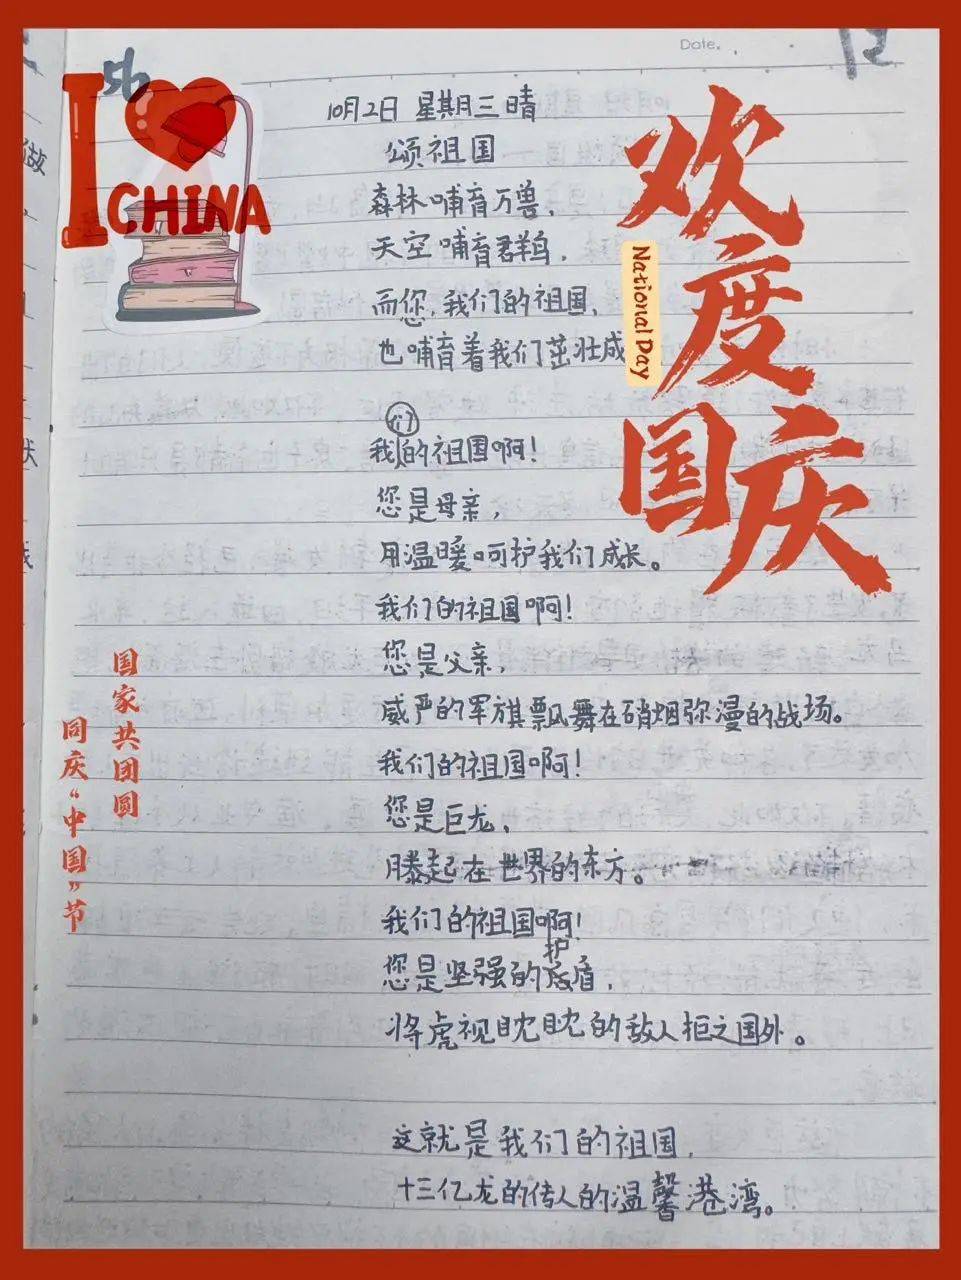 Date.
56
12
I
CHINA
10月2日 星期三 晴
颂祖国
森林哺育万兽，
天空哺育群鸟，
而您，我们的祖国，
也哺育着我们茁壮成
我们的祖国啊！
您是母亲，
用温暖呵护我们成长。
我们的祖国啊！
您是父亲，
威严的军旗飘舞在硝烟弥漫的战场。
我们的祖国啊！
您是巨龙，
腾起在世界的东方。
我们的祖国啊！
您是坚强的护盾，
将虎视眈眈的敌人拒之国外。
这就是我们的祖国，
十三亿龙的传人的温馨港湾。
欢度国庆
National Day
国家共团圆
同庆“中国”节